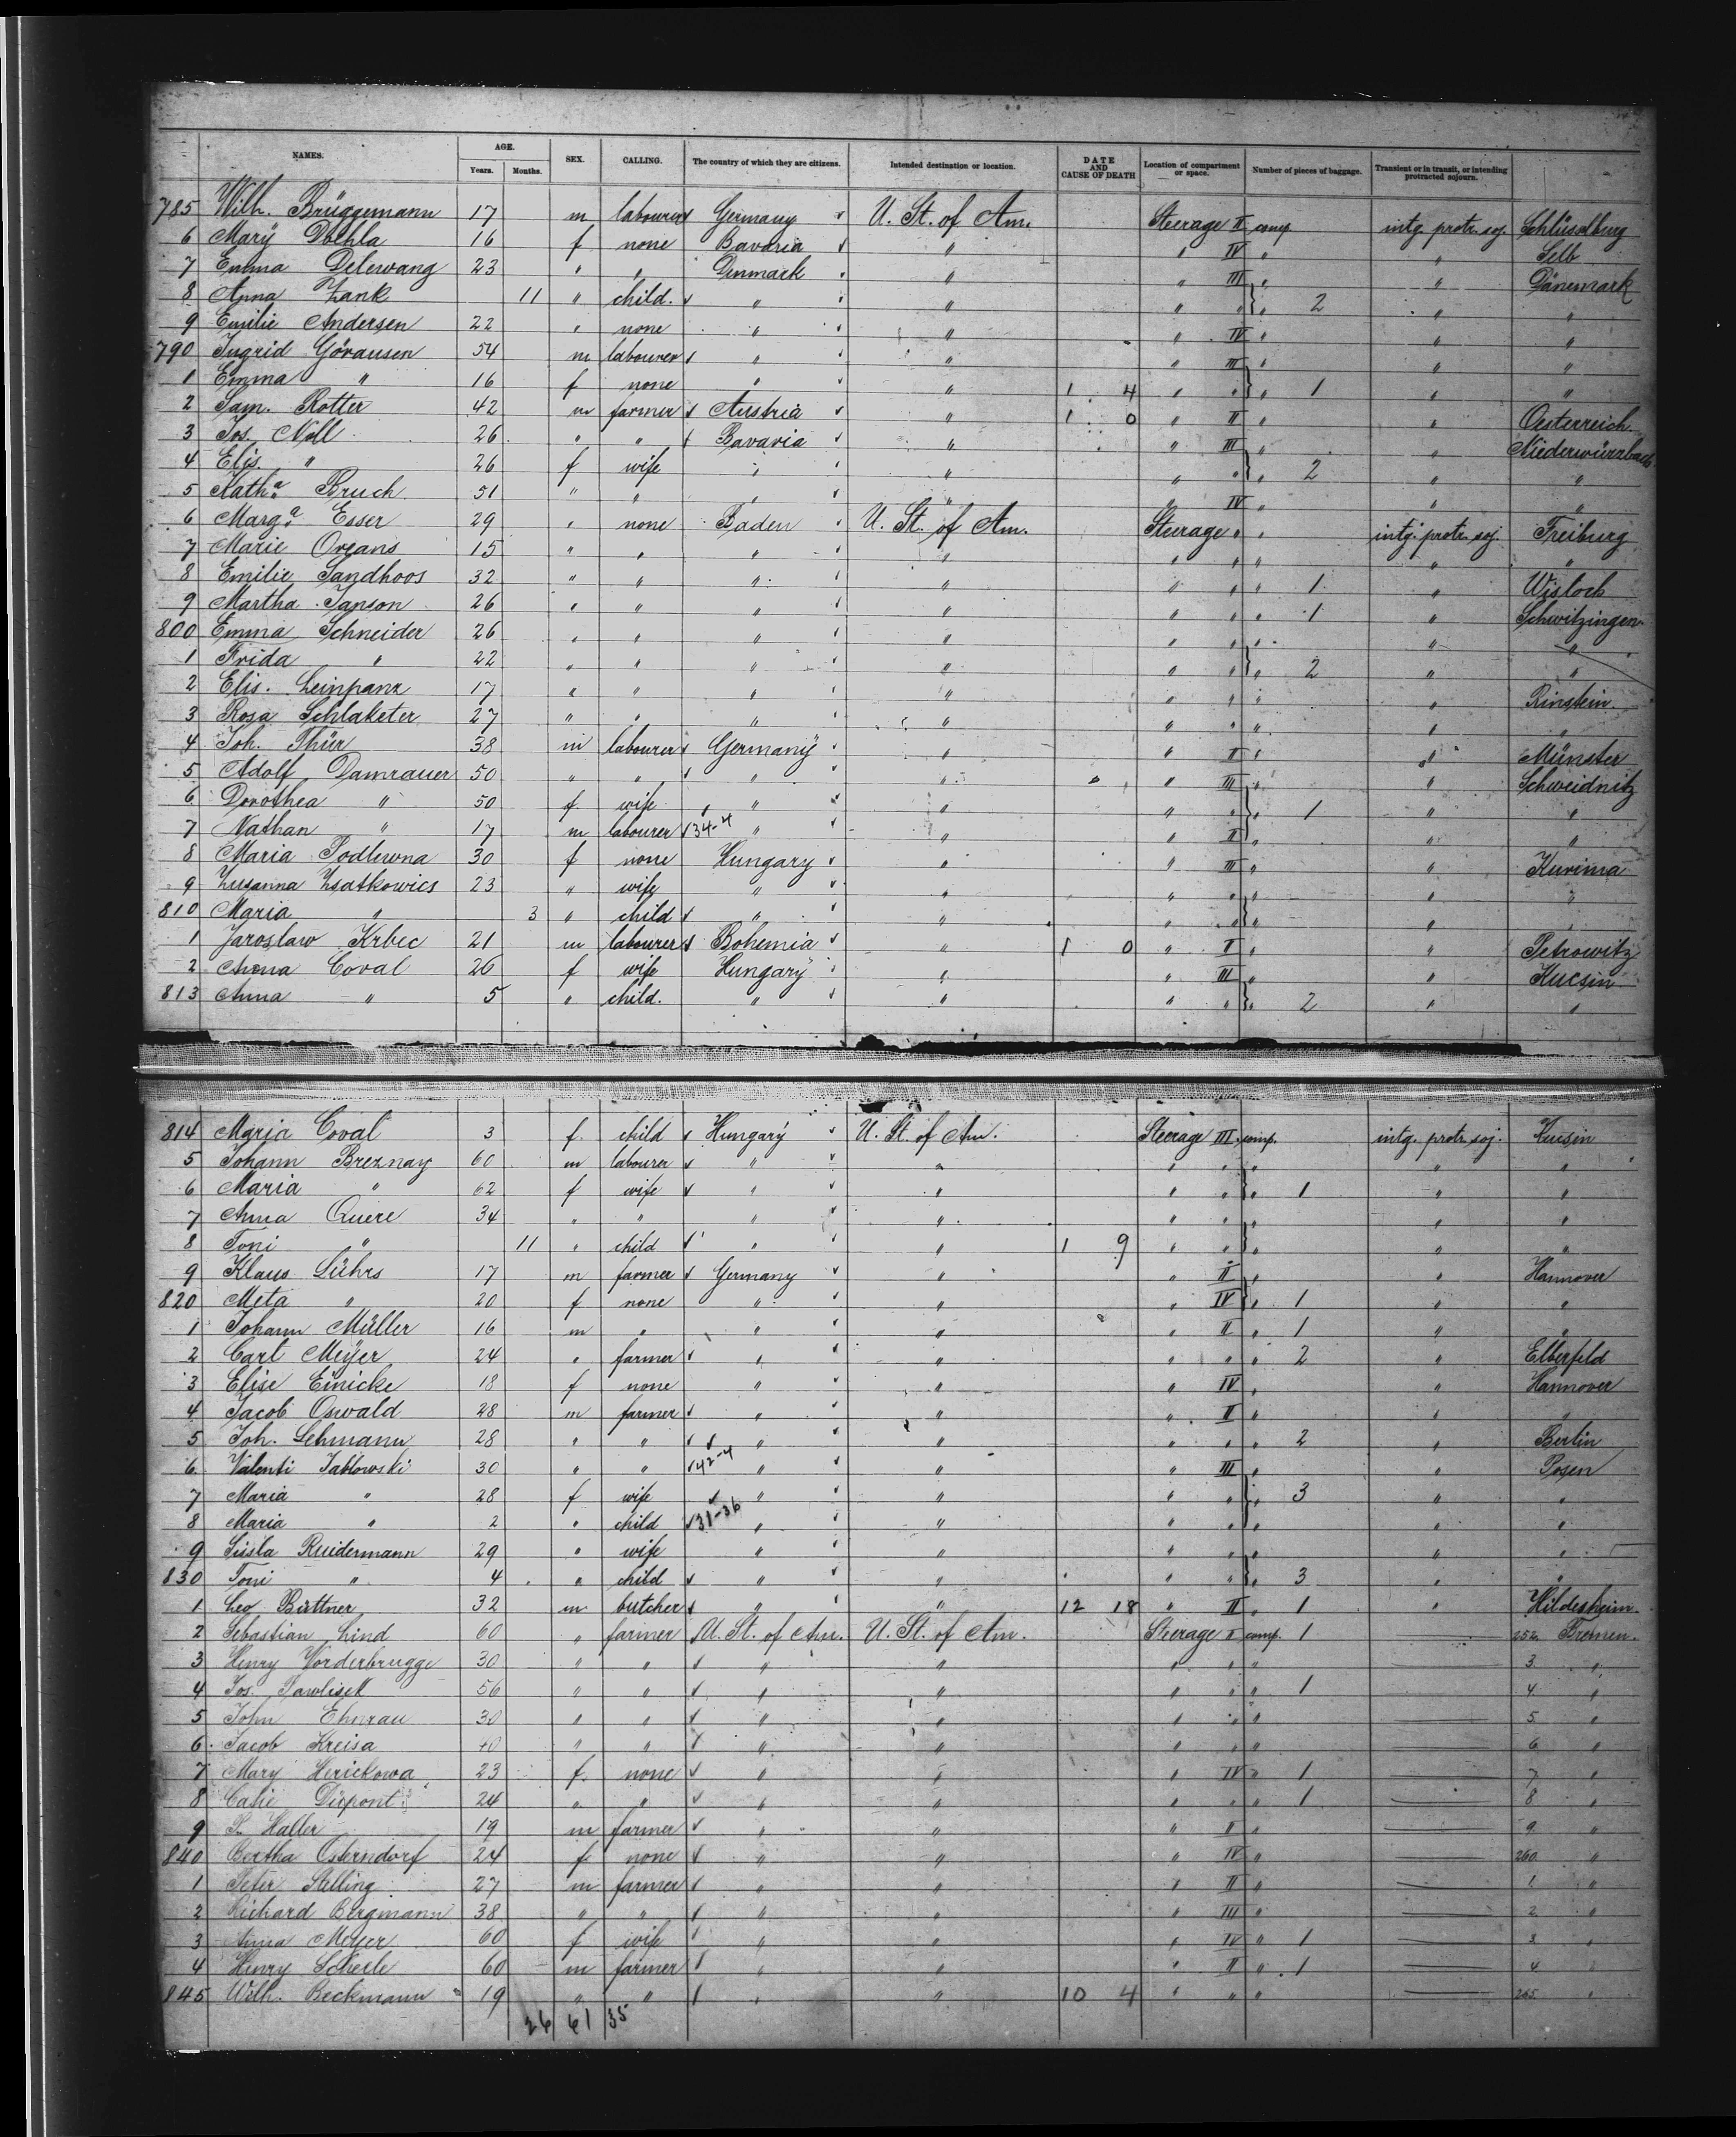 NAMES. AGE. Years. Months. SEX. CALLING. The country of which they are citizens. Intended destination or location. DATE AND CAUSE OF DEATH Location of compartment or space. Number of pieces of baggage. Transient or in transit, or intending protracted sojourn.
785 Wilh. Brüggemann 17 m labourer Germany U. St. of Am. Steerage II comp intg. protr. soj. Schlüsselburg
6 Marÿ 16 f none Bavaria " " IV " " Selb
7 Emma Delewang 23 " " Denmark " " III " " Dänemark
8 Anna Zank 11 " child. " " " " " 2 " "
9 Emilie Andersen 22 " none " " " IV " " "
790 Ingrid Göransen 54 m labourer " " " III " " "
1 Emma " 16 f none " " 1 4 " " " 1 " "
2 Sam. Rotter 42 m farmer Austria " 1 0 " II " " Oesterreich.
3 Jos. Noll 26 " " Bavaria " " III " " Niederwürzbach
4 Elis. " 26 f wife " " " " " 2 " "
5 Katha. Bruch 51 " " " " " IV " " "
6 Marga. Esser 29 " none Baden U. St. of Am. Steerage " " intg. protr. soj. Freiburg
7 Marie Oreans 15 " " " " " " " " "
8 Emilie Sandhoos 32 " " " " " " " 1 " Wisloch
9 Martha Janson 26 " " " " " " " 1 " Schwitzingen
800 Emma Schneider 26 " " " " " " " " "
1 Frida " 22 " " " " " " " 2 " "
2 Elis. Leinpanz 17 " " " " " " " " Ringstein
3 Rosa Schlaketer 27 " " " " " " " " "
4 Joh. Thür 38 m labourer Germanÿ " " II " " Münster
5 Adolf Damrauer 50 " " " " " III " " Schweidnitz
6 Dorothea " 50 f. wife " " " " " 1 " "
7 Nathan " 17 m labourer 34-4 " " " II " " "
8 Maria Podlewna 30 f none Hungary " " III " " Kurima
9 Zusanna Zsatkowics 23 " wife " " " " " " "
810 Maria " 3 " child " " " " " " "
1 Jaroslaw Krbec 21 m labourer Bohemia " 1 0 " II " " Petrowitz
2 Anna Coval 26 f wife Hungarÿ " " III " " Kucsin
813 Anna " 5 " child. " " " " " 2 " "
814 Maria Coval 3 f. child Hungarÿ U. St. of Am. Steerage III comp. intg. protr. soj. Kucsin
5 Johann Breznay 60 m labourer " " " " " " "
6 Maria " 62 f wife " " " " " 1 " "
7 Anna Quere 34 " " " " " " " " "
8 Toni " 11 " child " " 1 9 " " " " "
9 Klaus Lührs 17 m farmer Germany " " II " " Hannover
820 Meta " 20 f none " " " IV " 1 " "
1 Johann Müller 16 m " " " " II " 1 " "
2 Carl Meÿer 24 " farmer " " " " " 2 " Elberfeld
3 Elise Einicke 18 f none " " " IV " " Hannover
4 Jacob Oswald 28 m farmer " " " II " " "
5 Joh. Lehmann 28 " " " " " " " 2 " Berlin
6. Valenti Jablowski 30 " " 42-4 " " " III " " Posen
7 Maria " 28 f wife " " " " " 3 " "
8 Maria " 2 " child 31-36 " " " " " " "
9 Ruidermann 29 " wife " " " " " " "
830 Toni " 4 " child " " " " " 3 " "
1 Leo Büttner 32 m butcher " " 12 18 " II " 1 " Hildesheim.
2 Sebastian Lind 60 " farmer U. St. of Am. U. St. of Am. Steerage II comp. 1 252. Bremen.
3 Henry Vorderbrugge 30 " " " " " " " 3. "
4 Jos. Pawlisek 56 " " " " " " " 1 4. "
5 John 30 " " " " " " " 5. "
6. Jacob Kreisa 40 " " " " " " " 6. "
7 Mary Herickowa 23 f. none " " " IV " 1 7. "
8 Dupont 24 " " " " " " " 1 8 "
9 Haller 19 m farmer " " " II " 9. "
840 Bertha Osterndorf 24 f none " " " IV " 260. "
1 Peter Stelling 27 m farmer " " " II " 1. "
2 Richard Bergmann 38 " " " " " III " 2. "
3 Anna Meyer 60 f wife " " " IV " 1 3. "
4 Henry Scheele 60 m farmer " " " II " 1 4. "
845 Wilh. Beckmann 19 " " " " 10 4 " " " 265. "
26 61 35